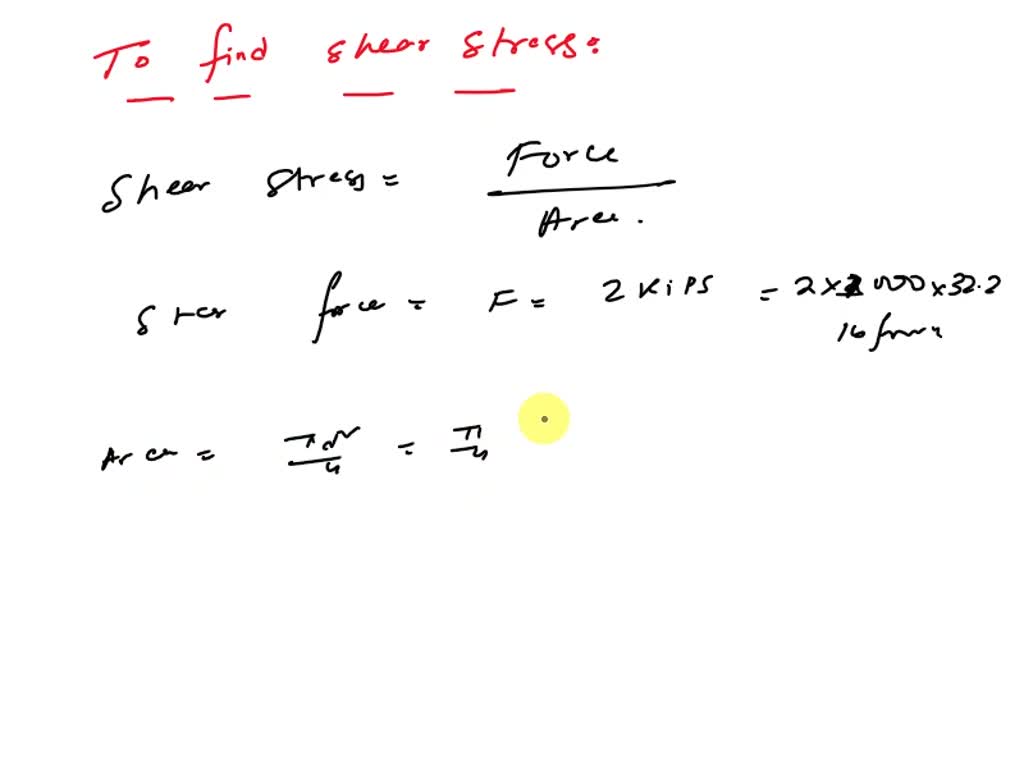 To find shear stress:
Shear stress = Force / Area.
force = F = 2 KiPS = 2 x 1000 x 32.2
Area = πd²/4 = π/4